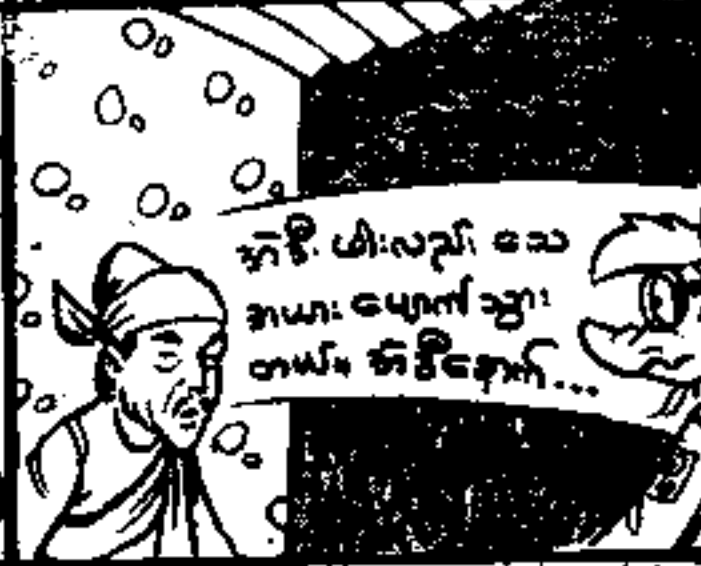 အဲ့ဒီ ဖါးလည်း သေ
အယား ပျောက် သွား
တယ်။ အဲ့ဒီနောက်...